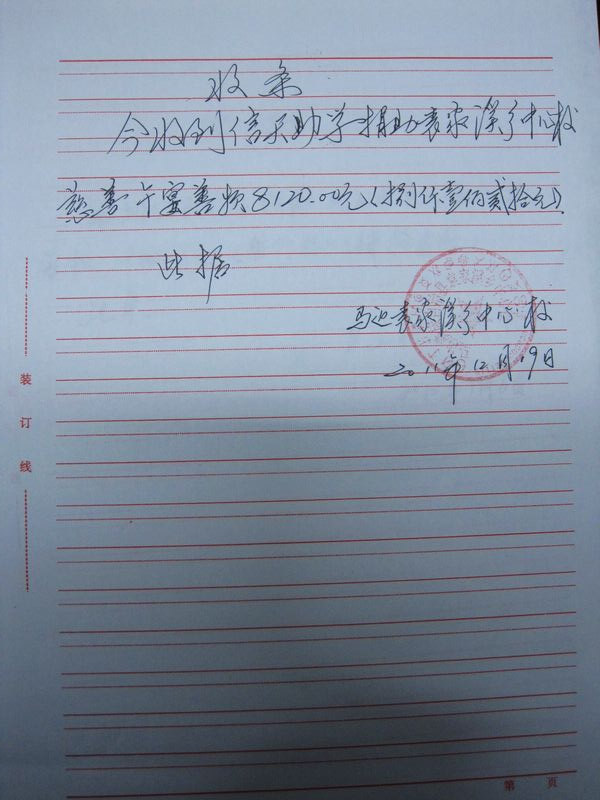 收条
今收到信天助学捐助袁家溪乡中心校
慈善午宴善款8120.00元(捌仟壹佰贰拾元).
此据
马边袁家溪乡中心校
2011年12月19日
装订线
第 页